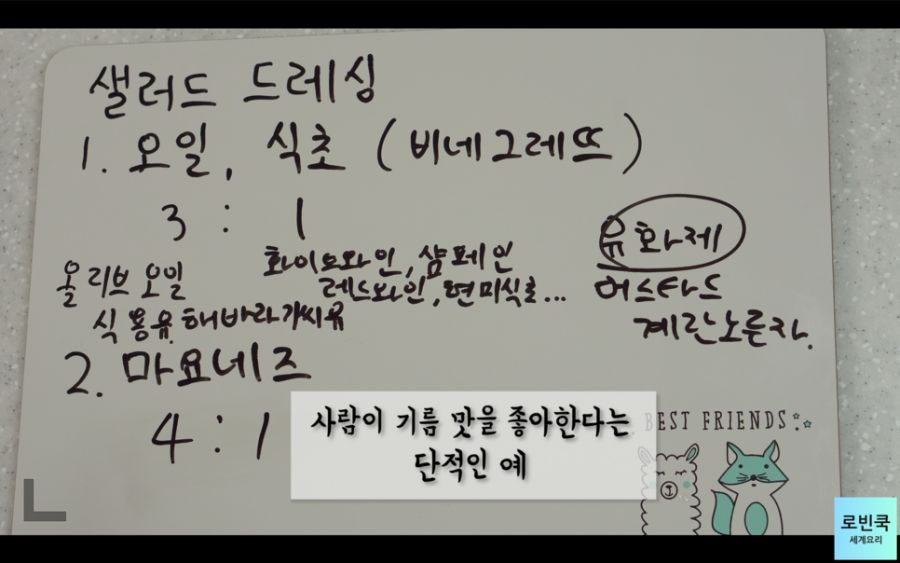 샐러드 드레싱
1. 오일, 식초 (비네그레뜨)
3 : 1
올리브 오일
식용유. 해바라기씨유
화이트와인, 샴페인
레드와인, 현미식초...
유화제
머스타드
계란노른자.
2. 마요네즈
4 : 1
사람이 기름 맛을 좋아한다는
단적인 예
BEST FRIENDS
로빈쿡
세계요리